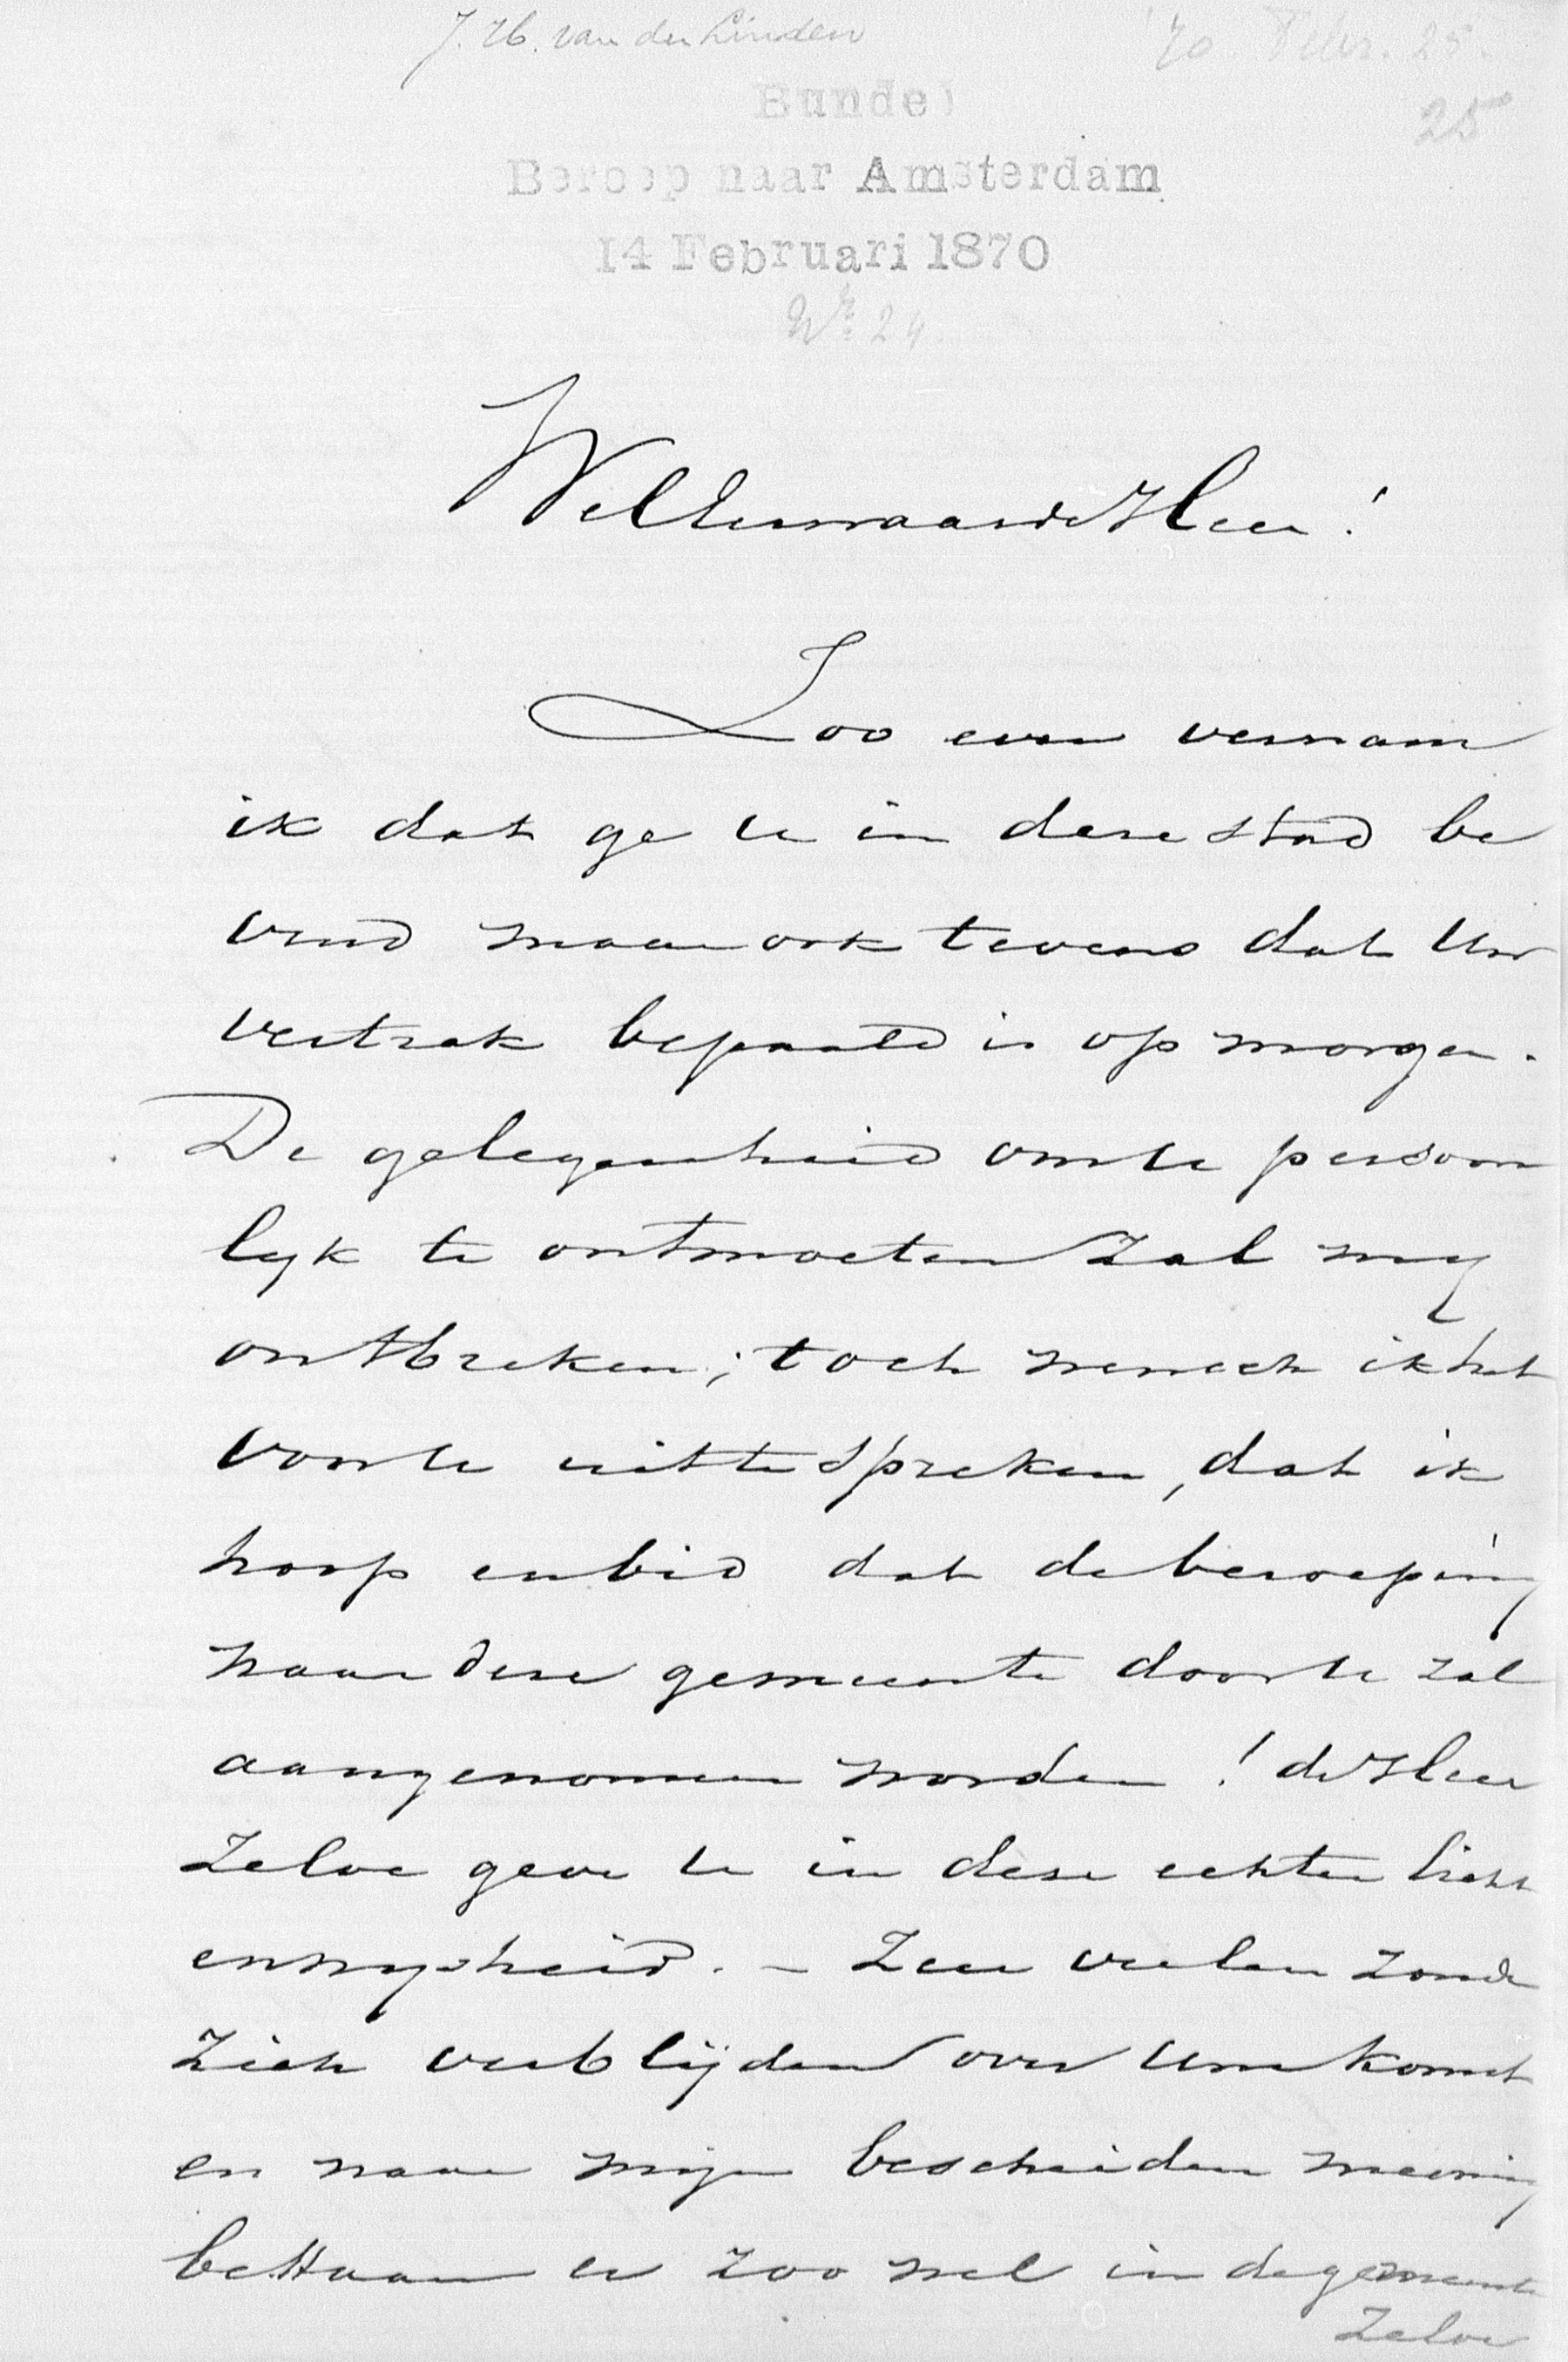 J. H. van der Linden
'70 Febr. 25.
25
Bundel
Beroep naar Amsterdam
14 Februari 1870
Nr 24.
WelEerwaarde Heer!
Zoo even vernam
ik dat ge U in deze stad be
vind maar ook tevens dat Uw
vertrek bepaald is op morgen.
De gelegenheid om U persoon
lyk te ontmoeten zal my
ontbreken; toch wensch ik het
voor U uittespreken, dat ik
hoop en bid dat de beroeping
naar deze gemeente door U zal
aangenomen worden! de Heer
Zelve geve U in deze echter licht
en wysheid. – Zeer velen zoude
zich verblijden over Uwe komst
en naar mijn bescheiden meening
bestaan er zoo wel in de gemeente
Zelve